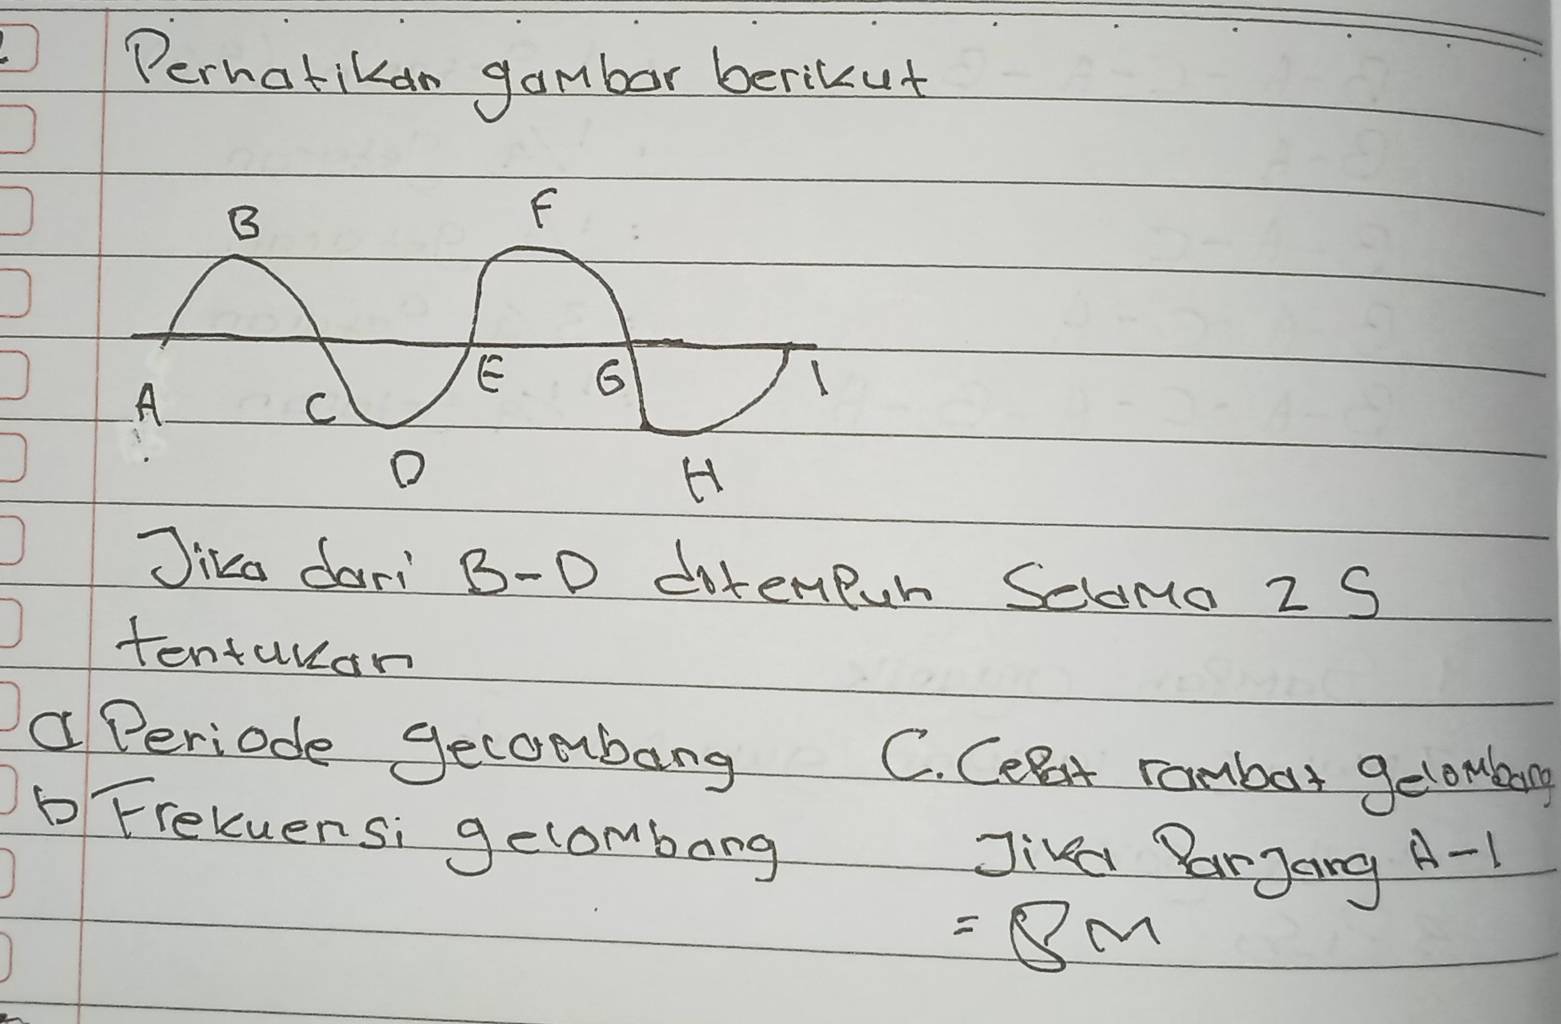 Perhatikan gambar berikut
B
F
A
C
E
G
I
D
H
Jika dari B-D ditempuh Selama 2 S
tentukan
a Periode gelombang
b Frekuensi gelombang
C. Cepat rambat gelombang
Jika Panjang A-I
= 8 M